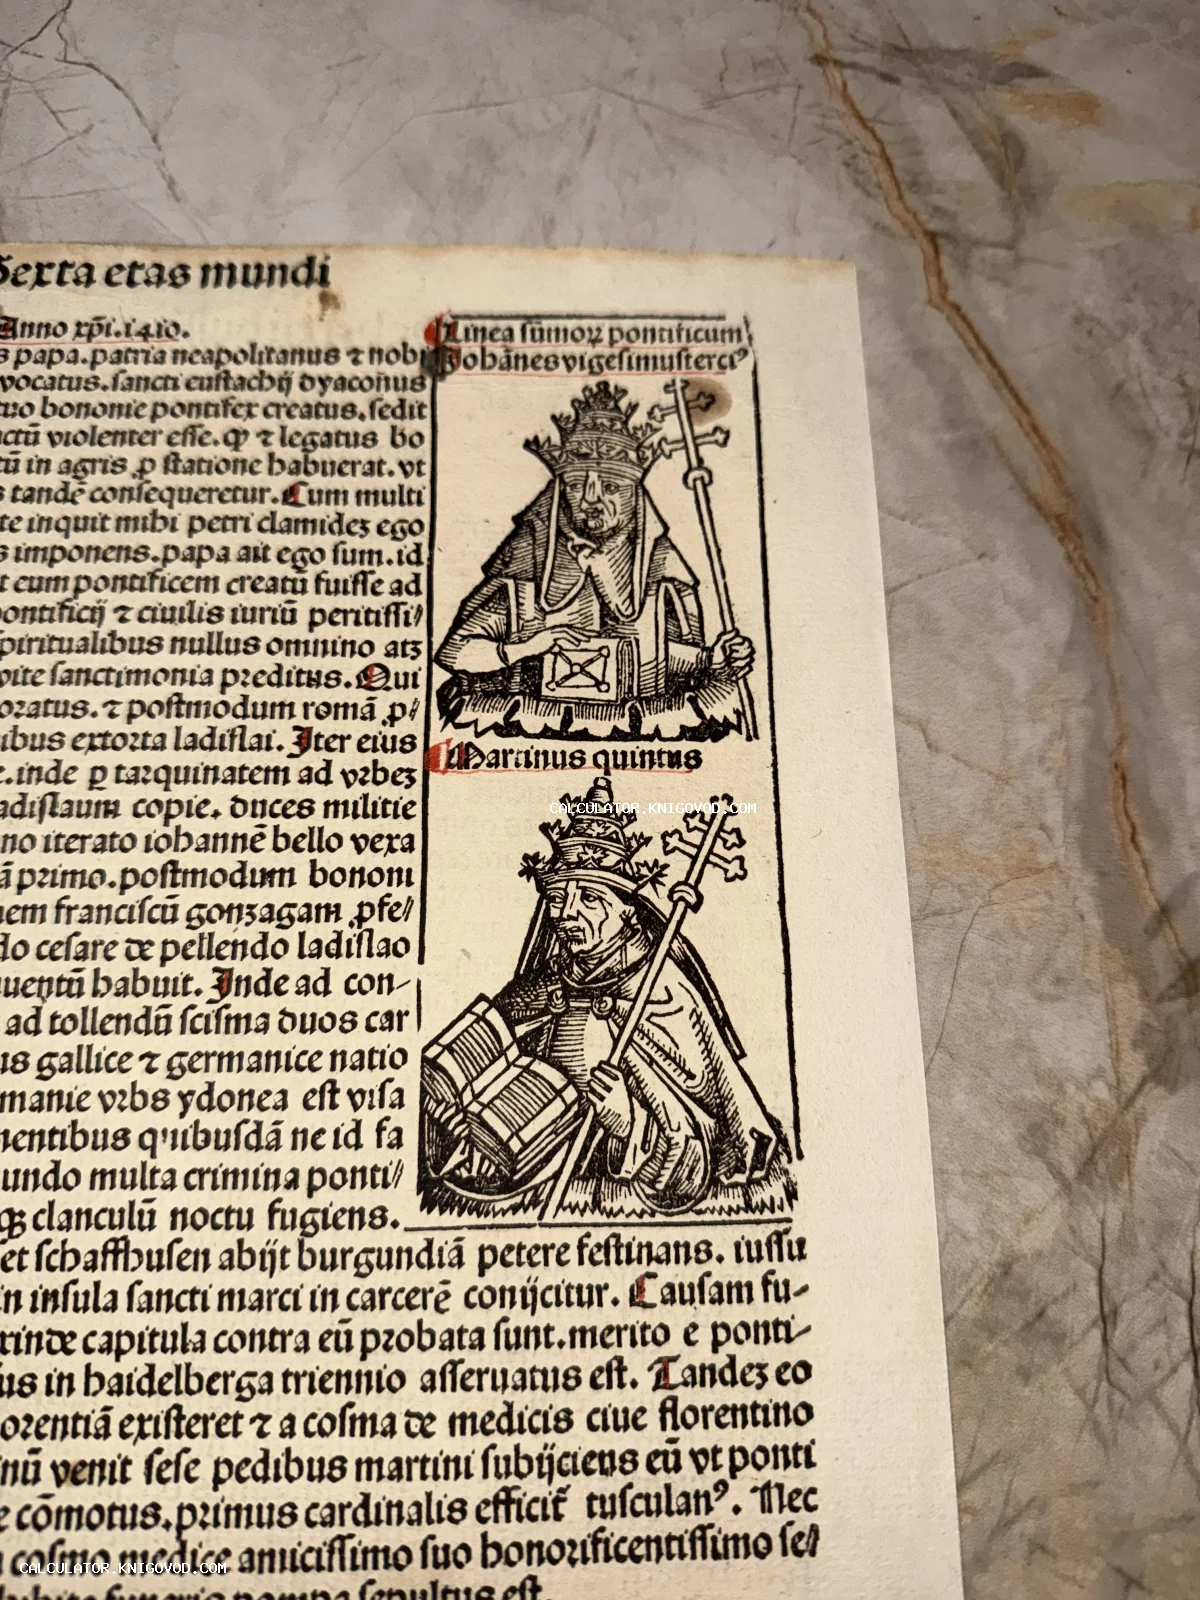 Sexta etas mundi
Anno xp̄i.1410.
s papa.patria neapolitanus ⁊ nobi
vocatus.sancti eustachij dyaconus
tuo bononie pontifex creatus.sedit
ctū violenter esse.ꝙ ⁊ legatus bo
tū in agris ꝓ statione habuerat.vt
s tandē consequeretur.Cum multi
te inquit mihi petri clamidez ego
s imponens.papa ait ego sum.id
t eum pontificem creatū fuisse ad
pontificij ⁊ ciuilis iuriū peritissi
spiritualibus nullus omnino atz
vite sanctimonia preditus.Qui
oratus.⁊ postmodum romā ꝓ
ibus extorta ladislai.Iter eius
e.inde ꝑ tarquinatem ad vrbez
adislaum copie.duces militie
no iterato iohannē bello vexa
ā primo.postmodum bononi
nem franciscū gonzagam ꝓfe
do cesare de pellendo ladislao
uentū habuit.Inde ad con-
ad tollendū scisma duos car
us gallice ⁊ germanice natio
manie vrbs ydonea est visa
nentibus quibusdā ne id fa
undo multa crimina ponti
qꝫ clanculū noctu fugiens.
Linea sūmoꝝ pontificum
Johānes vigesimusterciꝰ
Martinus quintus
et schaffhusen abijt burgundiā petere festinans.iussu
in insula sancti marci in carcerē conijcitur.Causam fu-
rinde capitula contra eū probata sunt.merito e ponti-
us in haidelberga triennio asseruatus est.Tandez eo
lorentiā existeret ⁊ a cosma de medicis ciue florentino
nū venit sese pedibus martini subijciens eū vt ponti
e cōmotus.primus cardinalis efficit̄ tusculanꝰ.Nec
cosmo medice amicissimo suo honorificentissimo se
funeris pompa sepultus est.
CALCULATOR.KNIGOVOD.COM
CALCULATOR.KNIGOVOD.COM